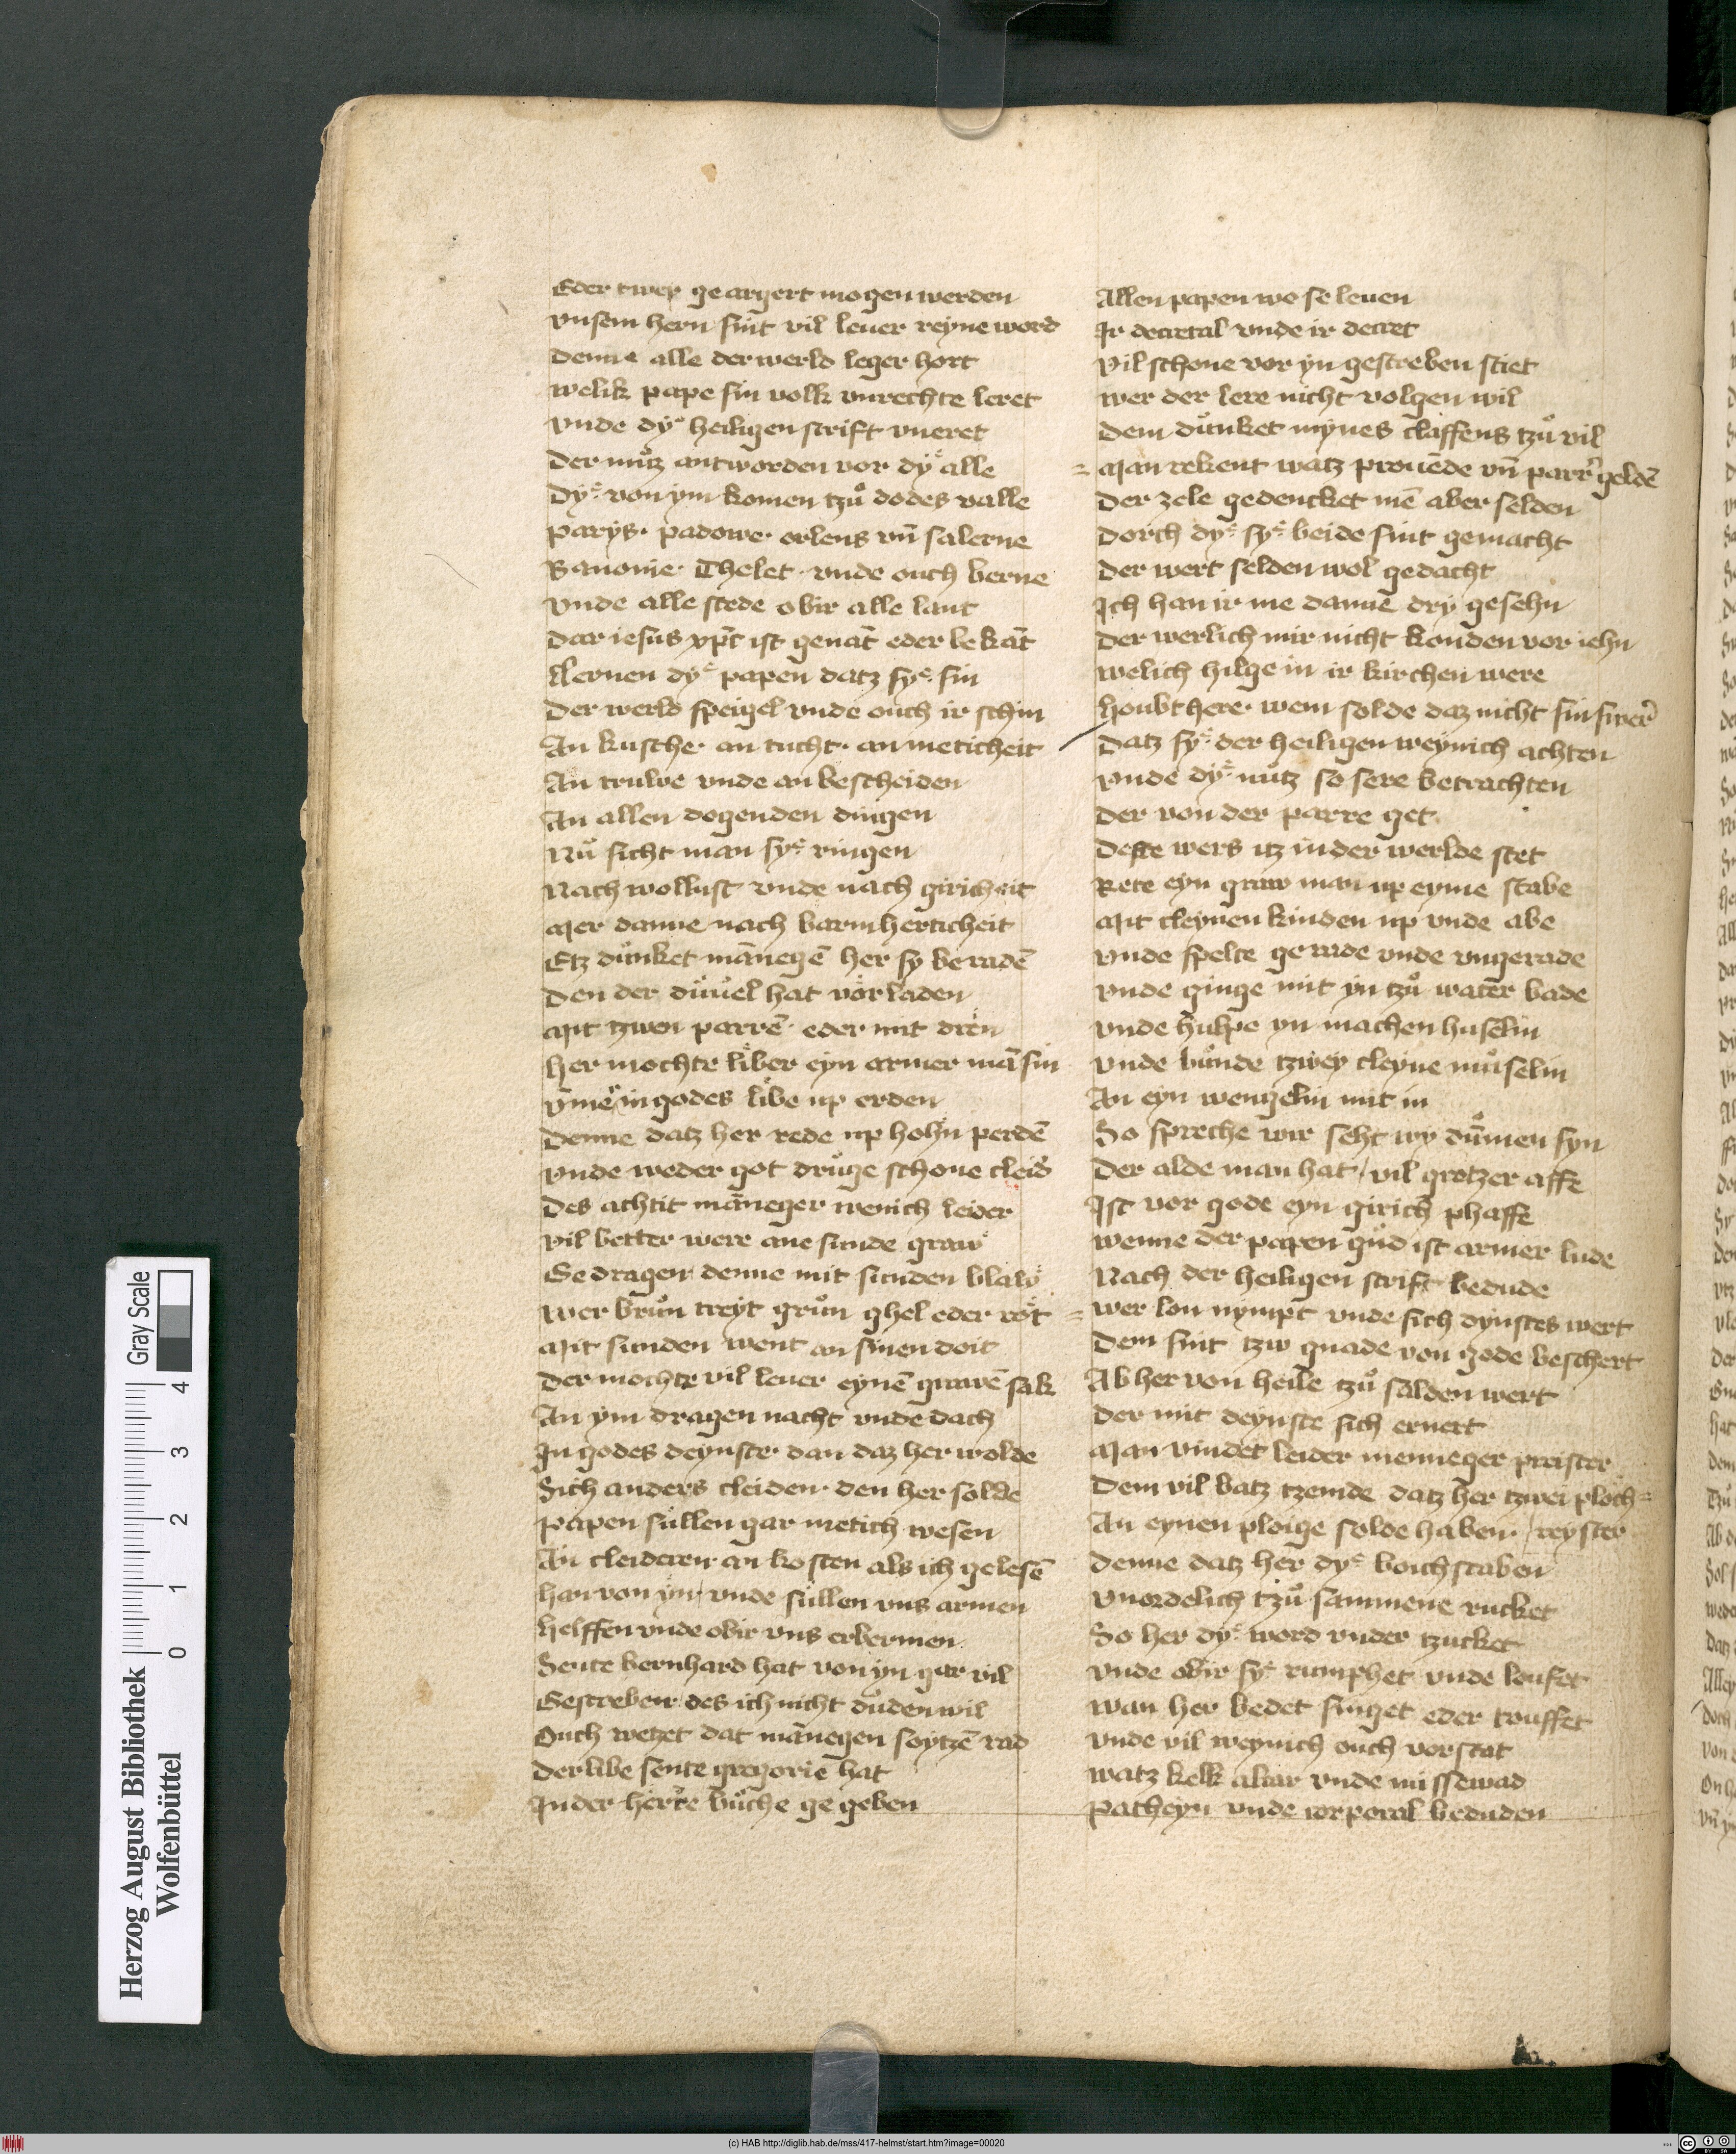 Eder twey ge argert mogen werden
vnsem hern sint vil leuer reyne word
denne alle der werld leger hort
welik pape sin volk vnrechte leret
vnde dyͤ heiligen scrift vneret
der muͦtz antworden vor dyͤ alle
dyͤ von ym komen tzuͦ dodes valle
parys · padowe · orlens vn̄ salerne
Banonie · Thelet · vnde ouch berne
vnde alle stede obir alle lant
dar iesus xp̄c ist genāt eder bekāt
llernen dyͤ papen datz syͤ sin
der werld speigel vnde ouch ir schin
An kusche · an tucht · an meticheit
An truwe vnde an bescheiden
An allen dogenden dingen
Nuͦ sicht man syͤ ringen
Nach wollust vnde nach giricheit
Mer danne nach barmherticheit
Etz duͦnket mānegē her sy beradē
den der duͤuel hat vorladen
Mit tzwen parrē · eder mit dren
her mochte liͤber eyn armer mā sin
vmē in godes liͤbe up erden
denne datz her rede up hohn perdē
vnde weder got druͤge schone cleid
des achtit māneger wenich leider
vil better were ane sunde graw
Ge dragen denne mit sunden blaw
wer bruͦn treyt gruͦn ghel eder rot
Mit sunden went an sinen doit
der mochte vil leuer eynē grawē sak
An ym dragen nacht vnde dach
In godes deynste · dan daz her wolde
Sich anders cleiden · den her solde
papen sullen gar metich wesen
An cleideren an kosten als ich gelesē
han von yn vnde sullen vns armen
helffen vnde obir vns erbermen
Sente bernhard hat von yn gar vil
Gescreben des ich nicht duden wil
Ouch wetzet dat mānegen soytzē rad
der libe sente gregorie hat
In der herte buͦche ge geben
Allen papen wo se leuen
Ir decretal vnde ir decret
vil schone vor yn gescreben stiet
wer der lere nicht volgen wil
dem duͦnket mynes claffens tzuͦ vil
Man rekent watz prouēde vn̄ parr̄ geldē
der zele gedencket mē aber selden
dorch dyͤ syͤ beide sint gemacht
der wert selden wol gedacht
Ich han ir me danne dry gesehn
der werlich mir nicht konden vor iehn
welich hilge in ir kirchen were
houbt here · wem solde daz nicht sin swer̄
datz syͤ der heiligen weynich achten
vnde dyͤ nuͦtz so sere betrachten
der von der parre get
deste wers itz in der werlde stet
Rete eyn graw man up eyme stabe
Mit cleynen kinden up vnde abe
vnde spelte gerade vnde vngerade
vnde ginge mit yn tzuͦ water bade
vnde hulpe yn machen huselin
vnde buͦnde tzwey cleyne muͦselin
An eyn wengelin mit in
So spreche wir seht wy duͦmen syn
der alde man hat / vil grotzer affe
Ist vor gode eyn girich phaffe
wenne der papen guͦd ist armer lude
Nach der heiligen scrift bedude
wer lon nympt vnde sich dynstes wert
dem sint tzw gnade von gode beschert
Ab her von heile tzuͦ salden wert
der mit deynste sich ernert
Man vindet leider menneger preister
dem vil batz tzemde datz her tzwei ploch=
An eynen ploige solde haben · / reyster
denne datz her dyͤ boichstaben
vnordelich tzuͦ sammene rucket
So her dyͤ word vnder tzucket
vnde obir syͤ rumphet vnde loufet
wan her bedet singet eder truffet
vnde vil weynich ouch vorstat
watz kelk altar vnde missewad
patheyn vnde corporal beduden
Herzog August Bibliothek
Wolfenbüttel
0 1 2 3 4
Gray Scale
(c) HAB http://diglib.hab.de/mss/417-helmst/start.htm?image=00020